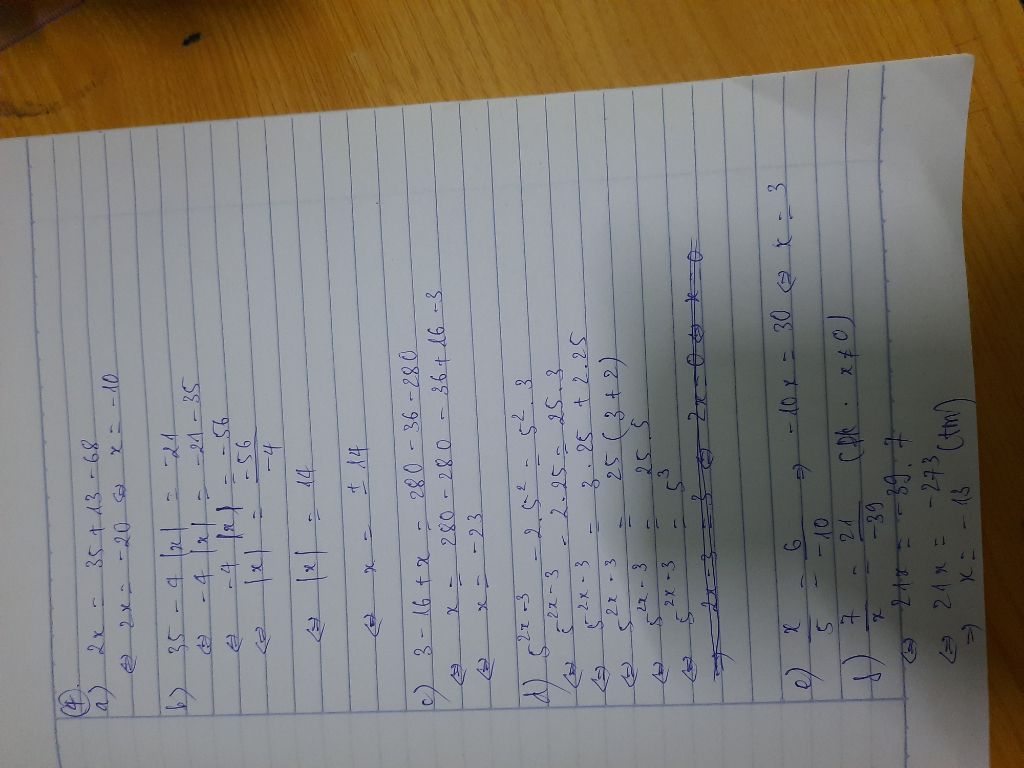 ④
a) 2x = 35 + 13 - 68
⇔ 2x = -20 ⇔ x = -10
b) 35 - 4 |x| = -21
⇔ -4 |x| = -21 - 35
⇔ -4 |x| = -56
⇔ |x| = -56/-4
⇔ |x| = 14
⇔ x = ±14
c) 3 - 16 + x = 280 - 36 - 280
⇔ x = 280 - 280 - 36 + 16 - 3
⇔ x = -23
d) 5^(2x-3) - 2.5² = 5².3
⇔ 5^(2x-3) - 2.25 = 25.3
⇔ 5^(2x-3) = 3.25 + 2.25
⇔ 5^(2x-3) = 25(3+2)
⇔ 5^(2x-3) = 25.5
⇔ 5^(2x-3) = 5³
⇒ 2x - 3 = 3 ⇔ 2x = 0 ⇔ x = 0
e) x/5 = 6/-10 ⇒ -10x = 30 ⇔ x = 3
f) 7/x = 21/-39 (đk: x ≠ 0)
⇔ 21x = -39.7
⇔ 21x = -273
⇒ x = -13 (tm)